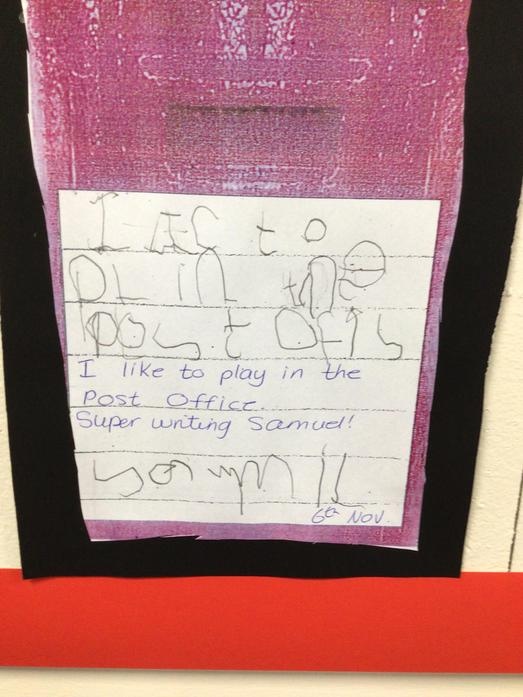 to
PL in the
post Ofis
I like to play in the
Post Office.
Super writing Samuel!
6th Nov.